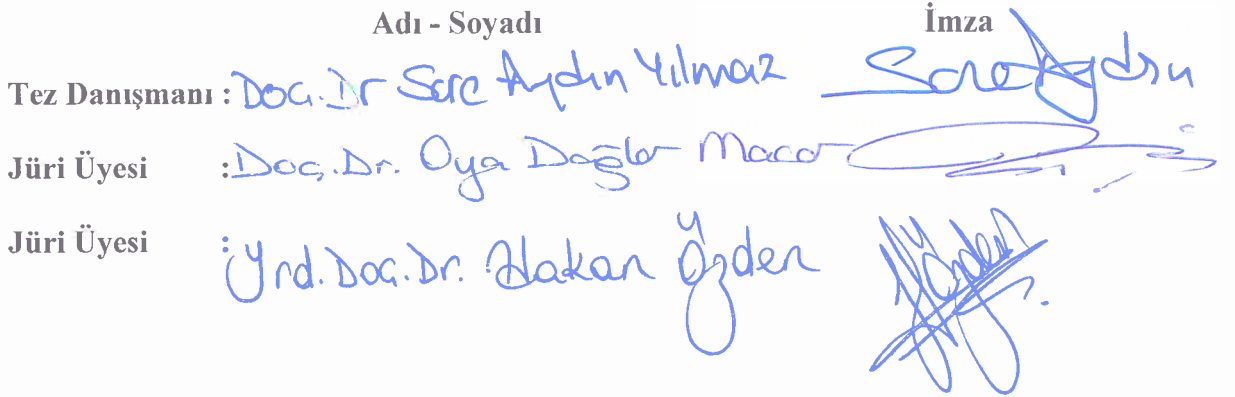 Adı - Soyadı İmza
Tez Danışmanı : Doç. Dr Sare Aydın Yılmaz Sare Aydın
Jüri Üyesi : Doç. Dr. Oya Dağlar Macar
Jüri Üyesi : Yrd. Doç. Dr. Hakan Özden HÖzden